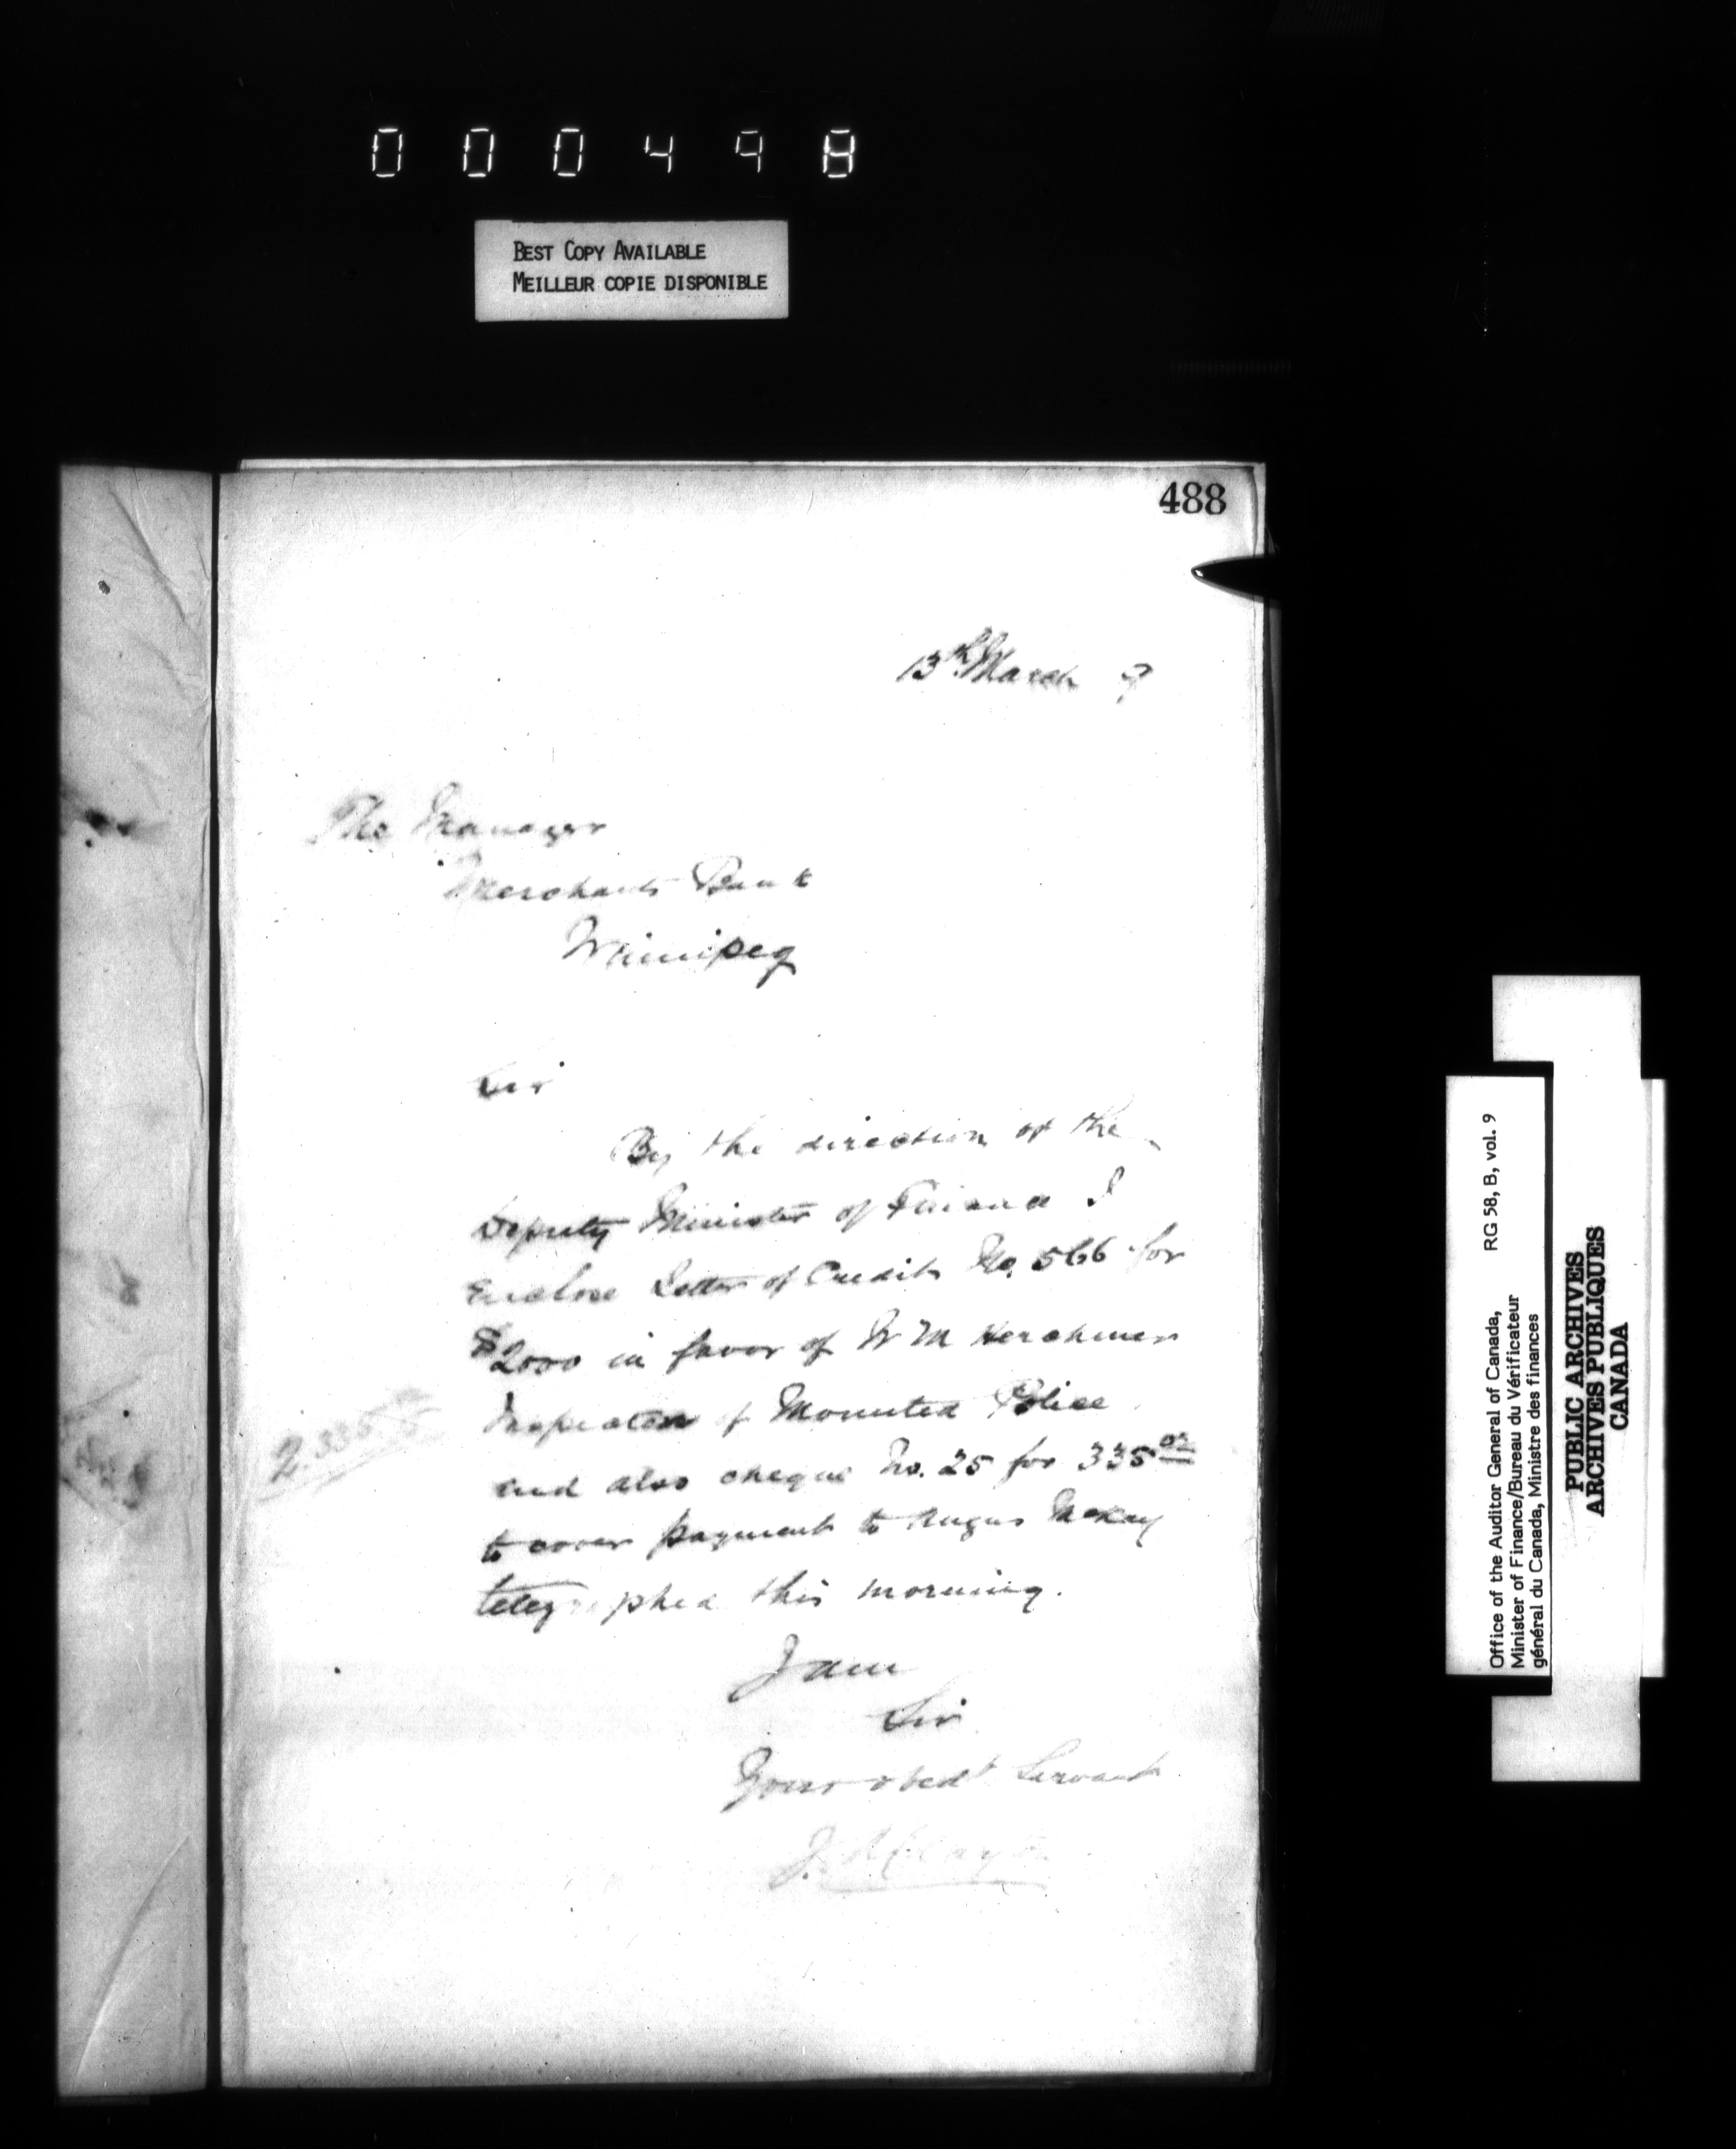 000498
BEST COPY AVAILABLE
MEILLEUR COPIE DISPONIBLE
488
13th March 9
The Manager
Merchants Bank
Winnipeg
Sir
By the direction of the
Deputy Minister of Finance I
enclose Letter of Credit No. 566 for
$2000 in favor of W M Herchmer
Inspector of Mounted Police
2.335
and also cheque No. 25 for 335
to cover payment to Angus McKay
telegraphed this morning.
I am
Sir
Your obedt Servant
Office of the Auditor General of Canada, RG 58, B, vol. 9
Minister of Finance/Bureau du Vérificateur
général du Canada, Ministre des finances
PUBLIC ARCHIVES
ARCHIVES PUBLIQUES
CANADA